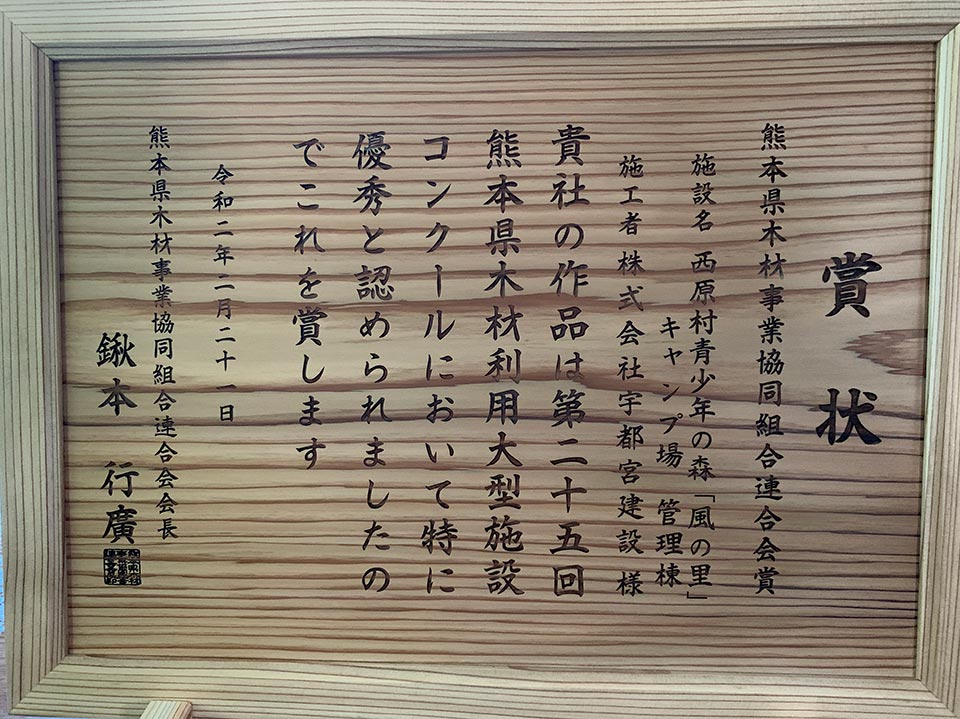 賞状
熊本県木材事業協同組合連合会賞
施設名 西原村青少年の森「風の里」
キャンプ場 管理棟
施工者 株式会社宇都宮建設 様
貴社の作品は第二十五回
熊本県木材利用大型施設
コンクールにおいて特に
優秀と認められましたの
でこれを賞します
令和二年二月二十一日
熊本県木材事業協同組合連合会会長
鍬本 行廣